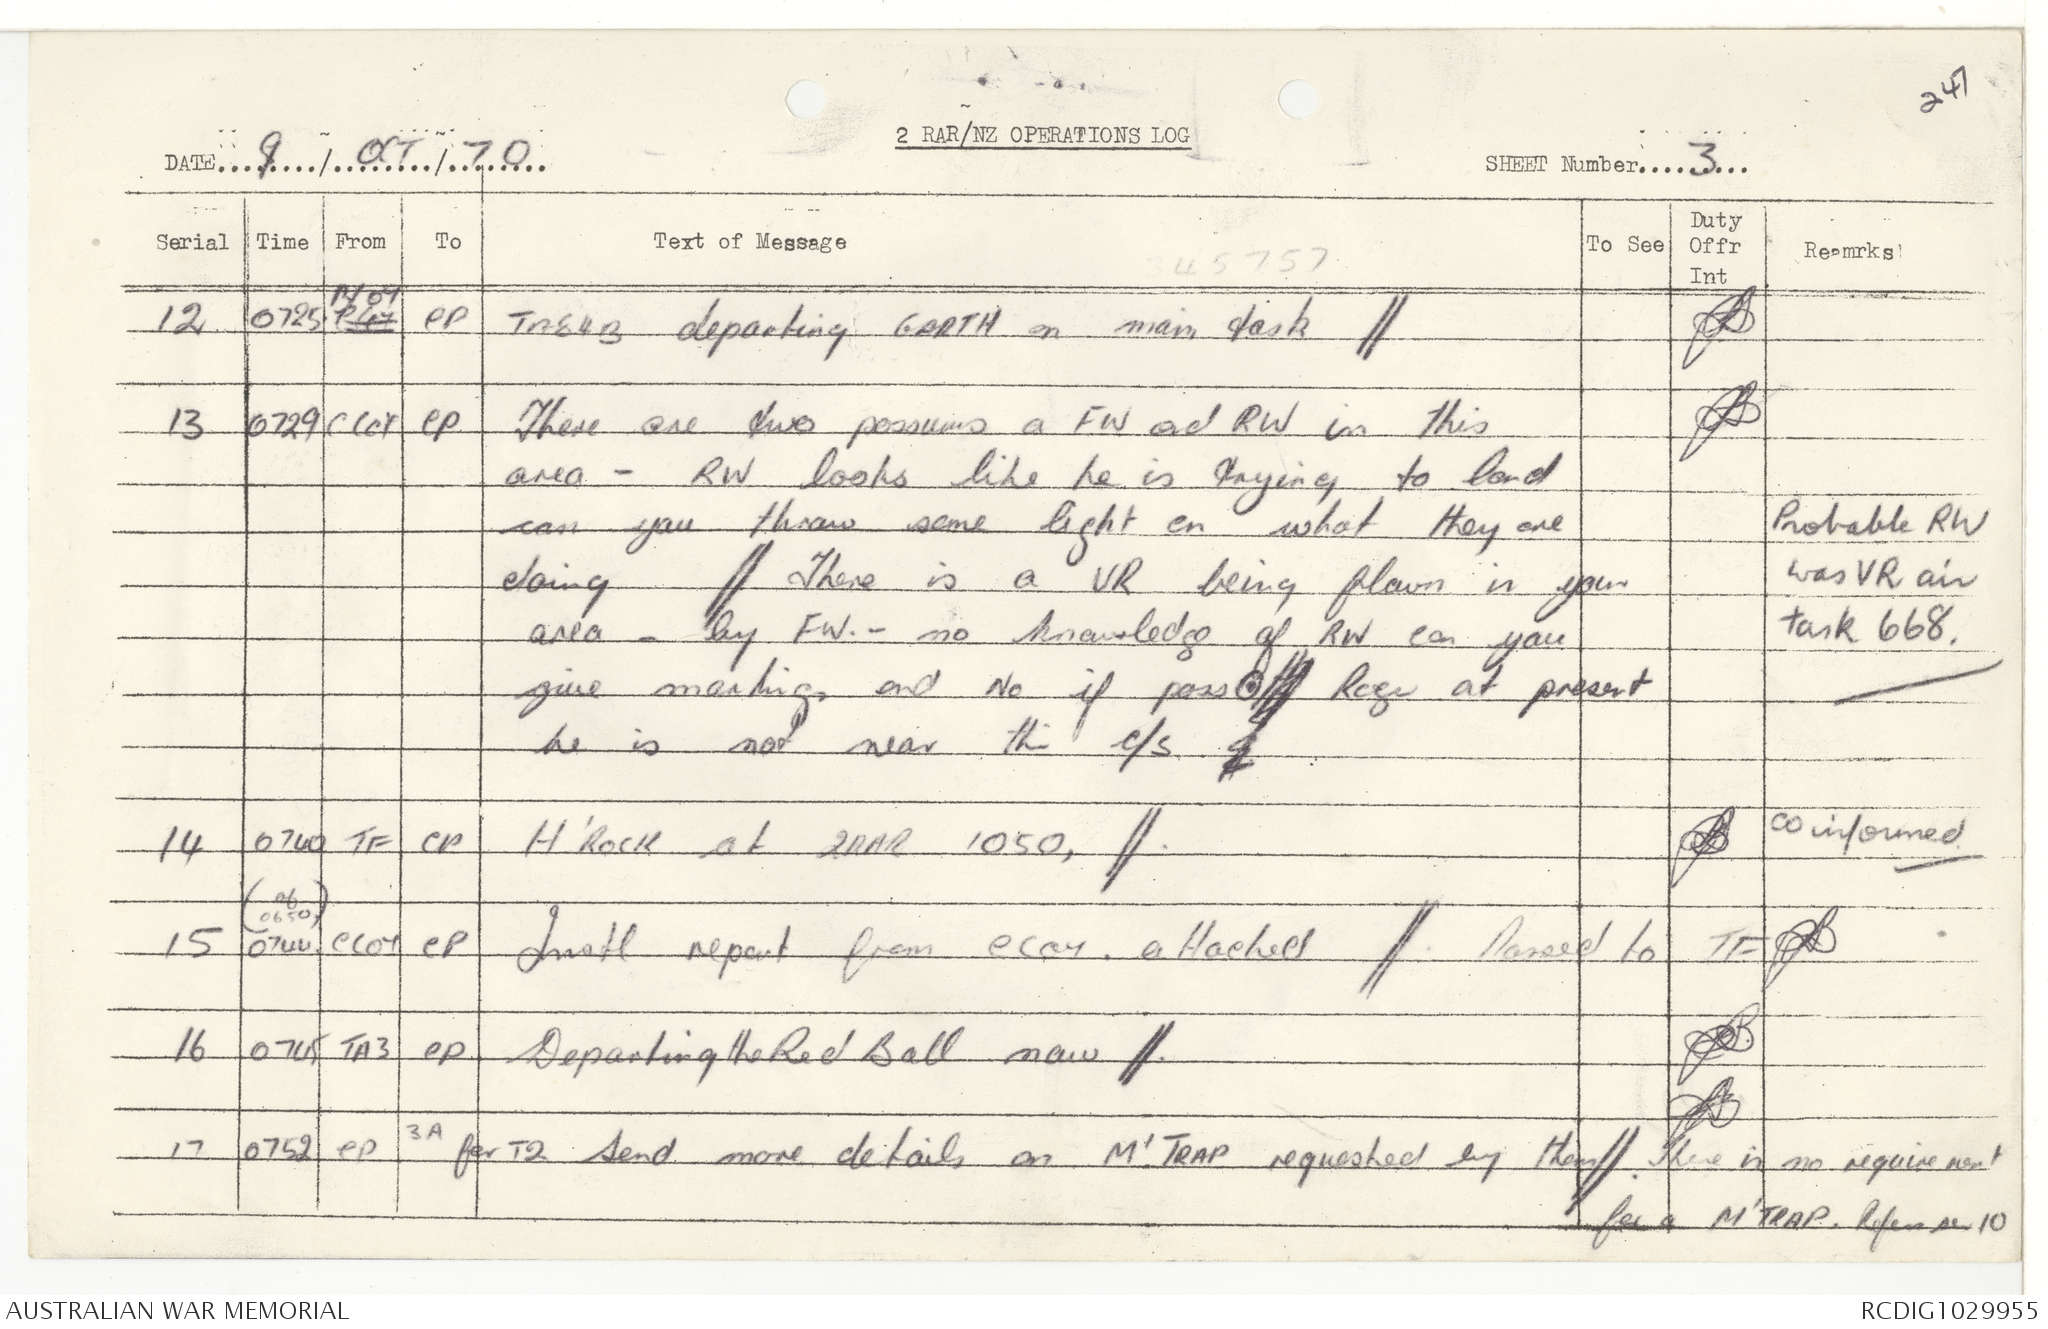 247
2 RAR/NZ OPERATIONS LOG
DATE...9..../...OCT.../..70.....
SHEET Number....3...
Serial Time From To Text of Message To See Duty Offr Int Reamrks
345757
12 0725 CP departing GARTH on main task //
13 0729 C Coy CP There are two possums a FW ad RW in this
area - RW looks like he is trying to land
can you throw some light on what they are
doing // There is a VR being flown in your
area - by FW. - no knowledge of RW can you
give markings and No if poss // Roger at present
he is not near this c/s
Probable RW
was VR air
task 668.
14 0740 TF CP H'ROCK at 2RAR 1050, //.
co informed
(at
0650)
15 0744 C Coy CP Instl report from C Coy. attached //. Passed to TF
16 0745 TA3 CP Departing the Red Ball now //.
17 0752 CP 3A for T2 Send more details on M'TRAP requested by them //. There is no requirement
for a M'TRAP. Refer ser 10
AUSTRALIAN WAR MEMORIAL
RCDIG1029955